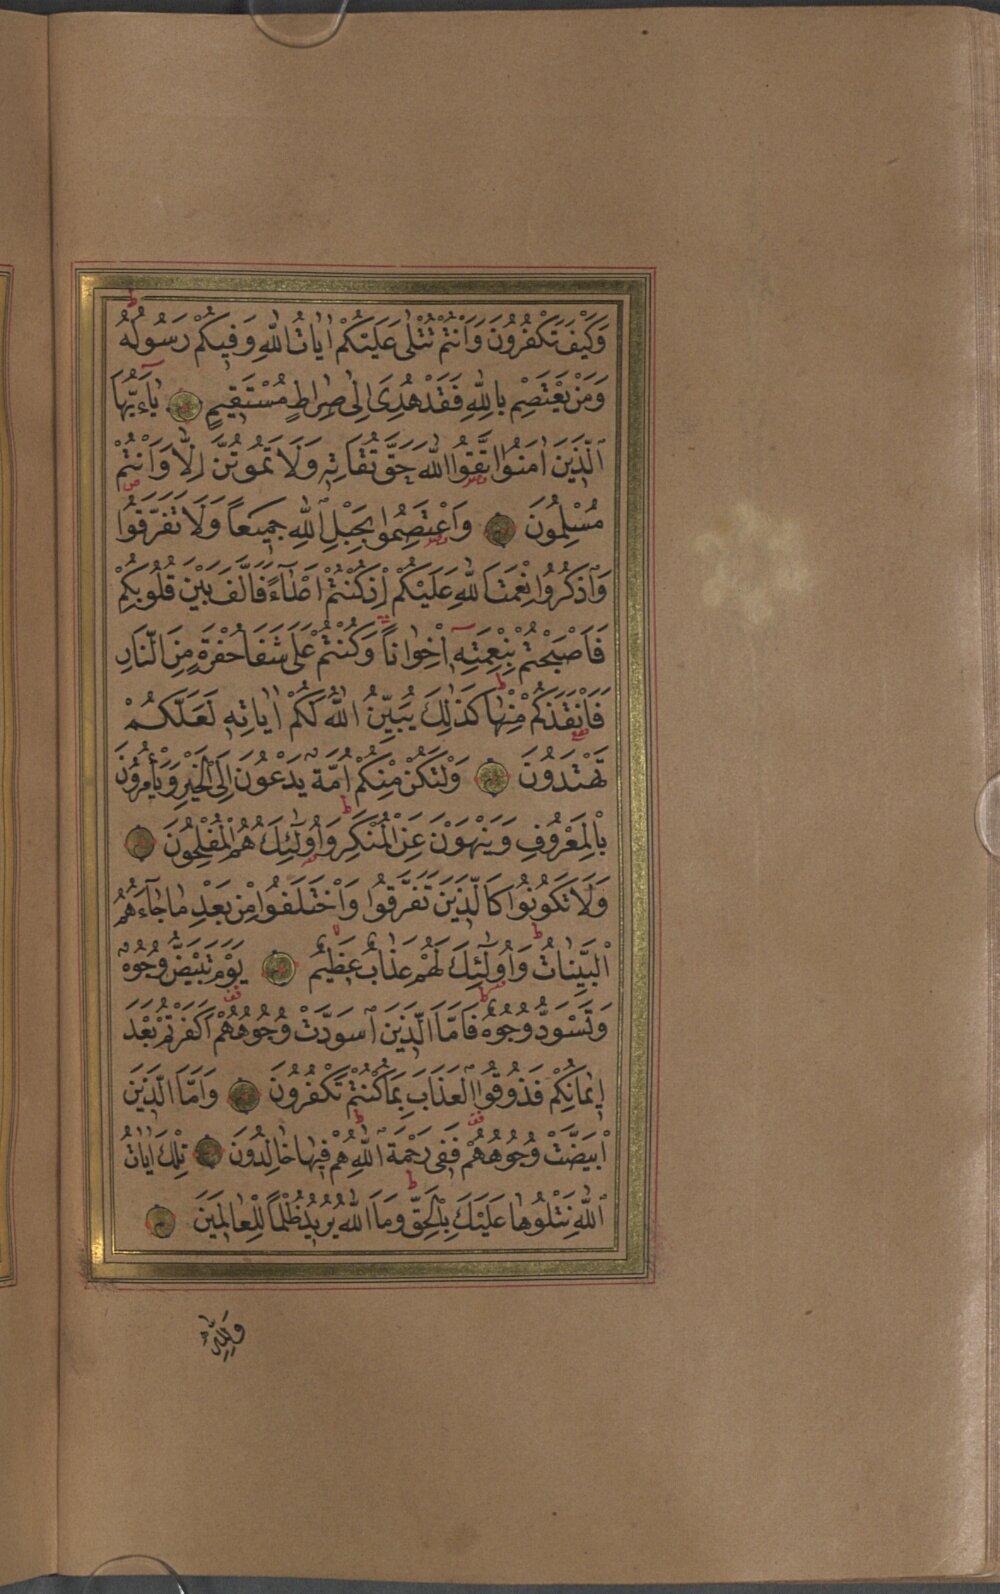 وَكَيْفَ تَكْفُرُونَ وَاَنْتُمْ تُتْلٰى عَلَيْكُمْ اٰيَاتُ اللّٰهِ وَفِيكُمْ رَسُولُهُ
وَمَنْ يَعْتَصِمْ بِاللّٰهِ فَقَدْ هُدِىَ اِلٰى صِرَاطٍ مُسْتَقِيمٍ يَآءَيُّهَا
الَّذِينَ اٰمَنُوا اتَّقُوا اللّٰهَ حَقَّ تُقَاتِهِ وَلَا تَمُوتُنَّ اِلَّا وَاَنْتُمْ
مُسْلِمُونَ وَاعْتَصِمُوا بِحَبْلِ اللّٰهِ جَمِيعًا وَلَا تَفَرَّقُوا
وَاذْكُرُوا نِعْمَتَ اللّٰهِ عَلَيْكُمْ اِذْ كُنْتُمْ اَعْدَآءً فَاَلَّفَ بَيْنَ قُلُوبِكُمْ
فَاَصْبَحْتُمْ بِنِعْمَتِهِ اِخْوَانًا وَكُنْتُمْ عَلٰى شَفَا حُفْرَةٍ مِنَ النَّارِ
فَاَنْقَذَكُمْ مِنْهَا كَذٰلِكَ يُبَيِّنُ اللّٰهُ لَكُمْ اٰيَاتِهِ لَعَلَّكُمْ
تَهْتَدُونَ وَلْتَكُنْ مِنْكُمْ اُمَّةٌ يَدْعُونَ اِلَى الْخَيْرِ وَيَأْمُرُونَ
بِالْمَعْرُوفِ وَيَنْهَوْنَ عَنِ الْمُنْكَرِ وَاُولٰٓئِكَ هُمُ الْمُفْلِحُونَ
وَلَا تَكُونُوا كَالَّذِينَ تَفَرَّقُوا وَاخْتَلَفُوا مِنْ بَعْدِ مَا جَآءَهُمُ
الْبَيِّنَاتُ وَاُولٰٓئِكَ لَهُمْ عَذَابٌ عَظِيمٌ يَوْمَ تَبْيَضُّ وُجُوهٌ
وَتَسْوَدُّ وُجُوهٌ فَاَمَّا الَّذِينَ اسْوَدَّتْ وُجُوهُهُمْ اَكَفَرْتُمْ بَعْدَ
اِيمَانِكُمْ فَذُوقُوا الْعَذَابَ بِمَا كُنْتُمْ تَكْفُرُونَ وَاَمَّا الَّذِينَ
ابْيَضَّتْ وُجُوهُهُمْ فَفِى رَحْمَةِ اللّٰهِ هُمْ فِيهَا خَالِدُونَ تِلْكَ اٰيَاتُ
اللّٰهِ نَتْلُوهَا عَلَيْكَ بِالْحَقِّ وَمَا اللّٰهُ يُرِيدُ ظُلْمًا لِلْعَالَمِينَ
وَلِلّٰهِ